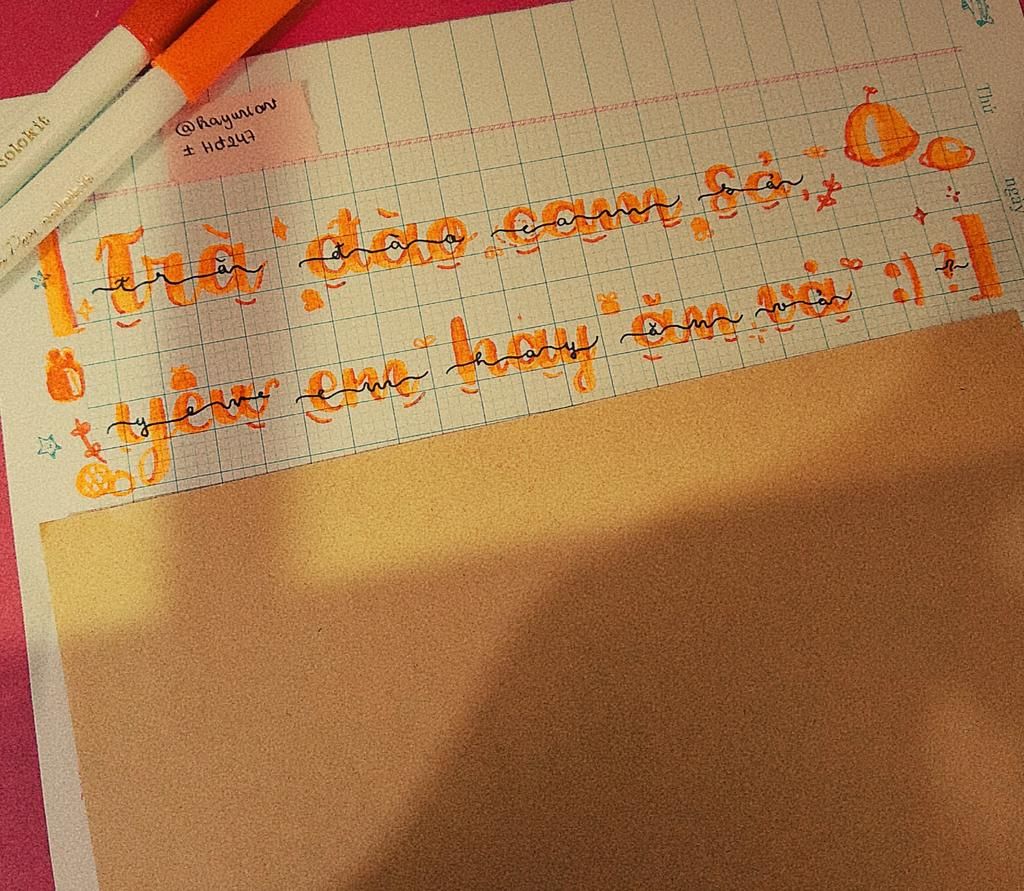 Colokit
@hayuriort
± Hd247
Thứ
ngày
[ Trà đào cam sả,
yêu em hay ăn vả :) ? ]